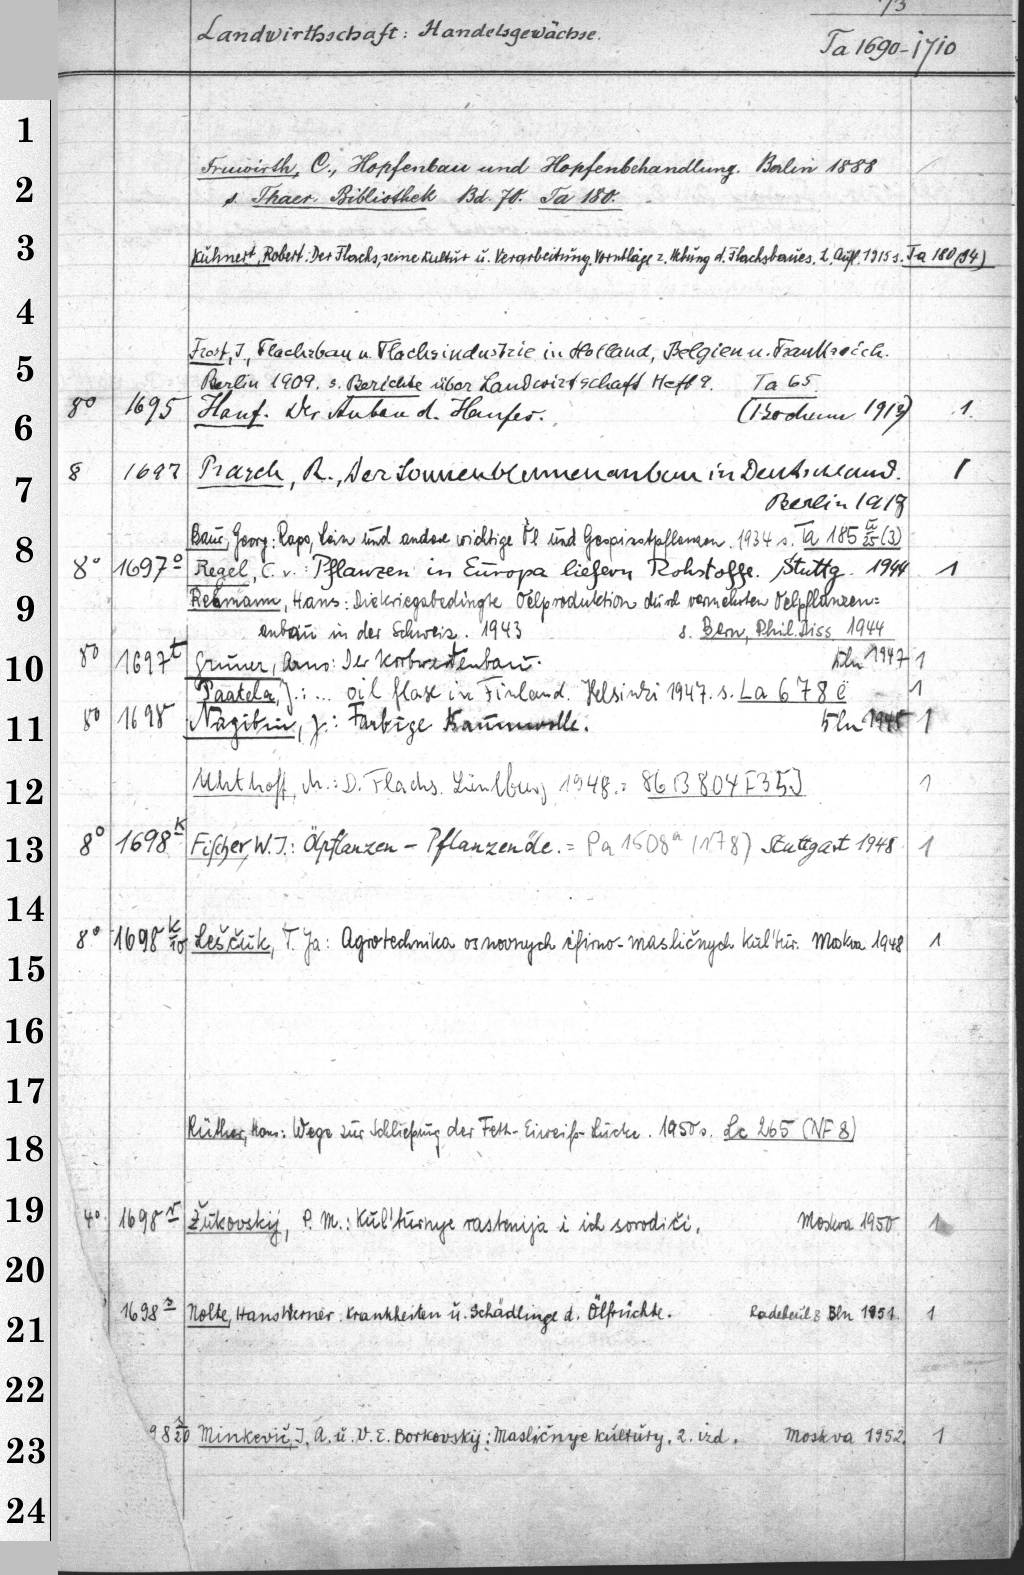 73
Landwirthschaft: Handelsgewächse.
Ta 1690-1710
1
Fruwirth, C., Hopfenbau und Hopfenbehandlung. Berlin 1888
2
s. Thaer Bibliothek Bd. 70. Ta 180.
3
Kühnert, Robert: Der Flachs, seine Kultur u. Verarbeitung. Vorschläge z. Hebung d. Flachsbaues. 2. Aufl. 1915 s. Ta 180 (94)
4
Frost, J., Flachsbau u. Flachsindustrie in Holland, Belgien u. Frankreich.
5
Berlin 1909. s. Berichte über Landwirtschaft Heft 9. Ta 65.
6
8° 1695 Hanf. Der Anbau d. Hanfes. (Bochum 1913) 1.
7
8 1697 Prasch, R., Der Sonnenblumenanbau in Deutschland. 1
Berlin 1919
8
Baur, Georg: Raps, Lein und andere wichtige Öl und Gespinstpflanzen. 1934 s. Ta 185 (3)
8° 1697° Regel, C. v.: Pflanzen in Europa liefern Rohstoffe. Stuttg. 1944 1
9
Rebmann, Hans: Die kriegsbedingte Oelproduktion durch vermehrten Oelpflanzen=
anbau in der Schweiz. 1943 s. Bern, Phil. Diss 1944
10
8° 1697t Gruner, Arno: Der Korbweidenbau. Bln 1947 1
Paatela, J.: ... oil flax in Finland. Helsinki 1947. s. La 678 e 1
11
8° 1698 Nagibin, J.: Farbige Baumwolle. Bln 1948 1
12
Uhthoff, M.: D. Flachs. Lüneburg 1948. = 86 B 804 [35] 1
13
8° 1698k Fischer, W. J.: Ölpflanzen - Pflanzenöle. = Pa 1508n (178) Stuttgart 1948 1
14
8° 1698 k/10 Leščuk, T. Ja: Agrotechnika osnovnych éfirno-masličnych kul'tur. Moskva 1948 1
15
16
17
18
Rüther, Hans: Wege zur Schließung der Fett-Eiweiß-Lücke. 1950 s. Lc 265 (NF 8)
19
4° 1698r Žukovskij, P. M.: Kul'turnye rastenija i ich sorodiči. Moskva 1950 1
20
21
1698s Nolte, Hans Werner: Krankheiten u. Schädlinge d. Ölfrüchte. Radebeul & Bln 1951. 1
22
23
98 s/20 Minkevič, I. A. u. V. E. Borkovskij: Masličnye kul'tury, 2. izd. Moskva 1952 1
24